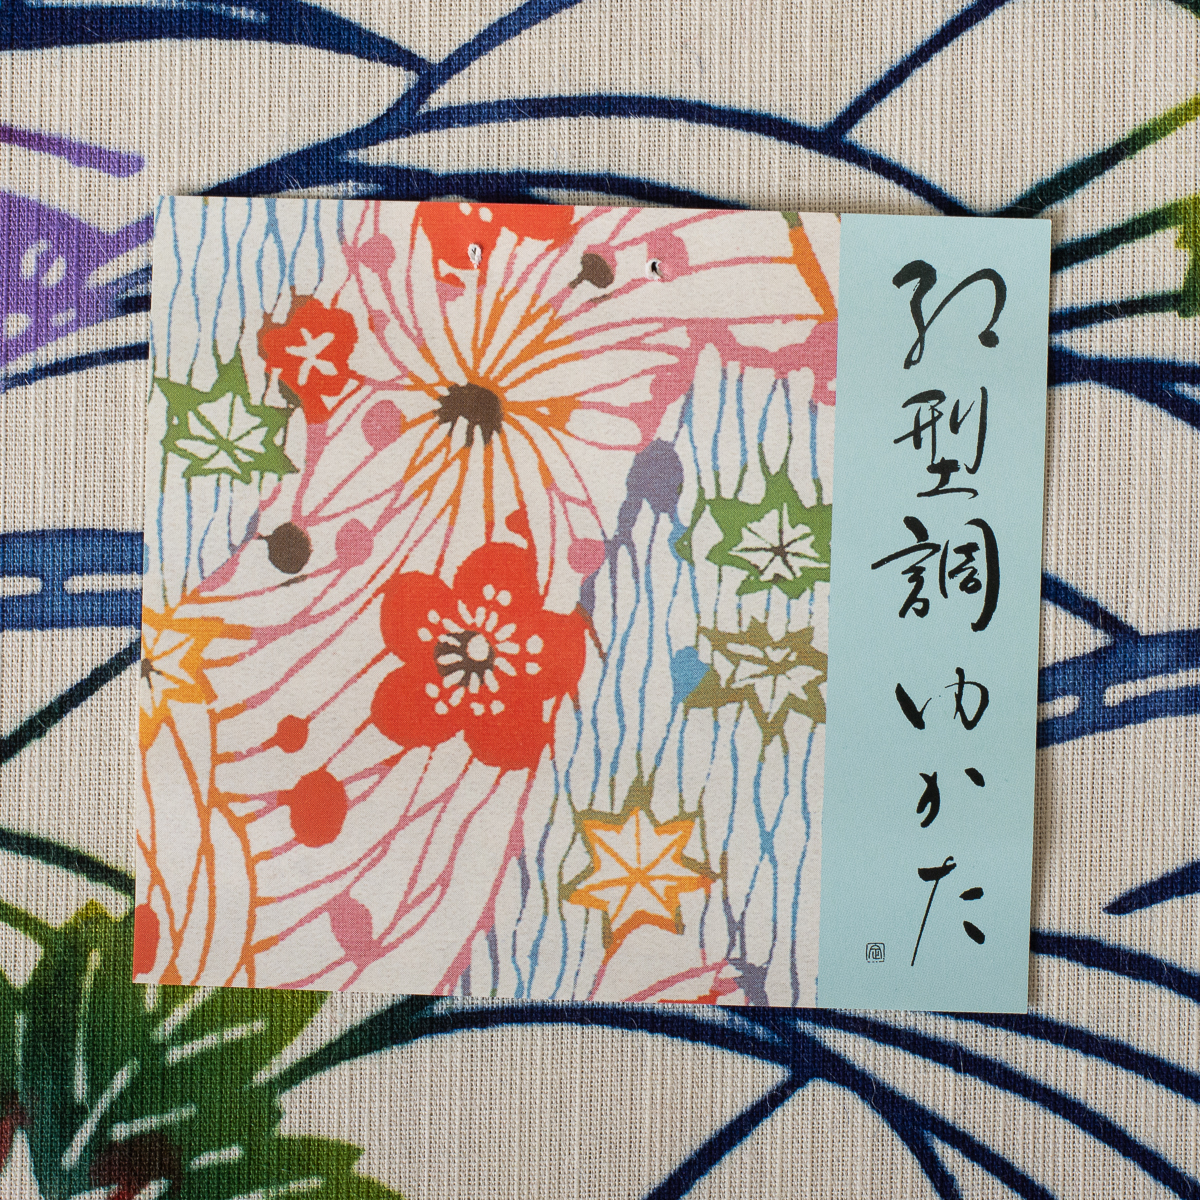 紅型調ゆかた